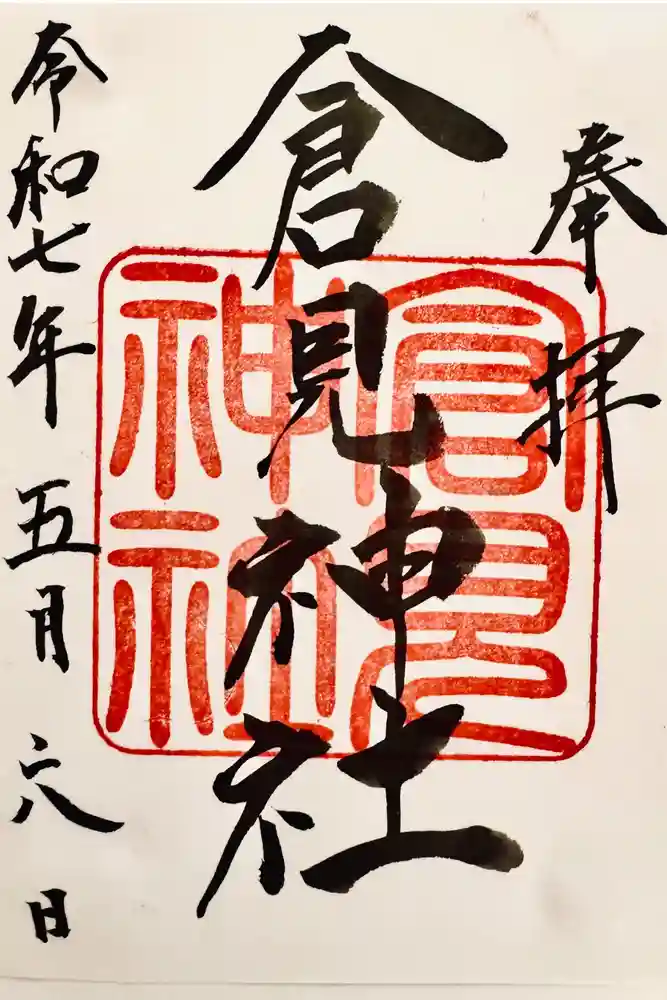 奉拝
倉見神社
倉見神社
令和七年五月六日